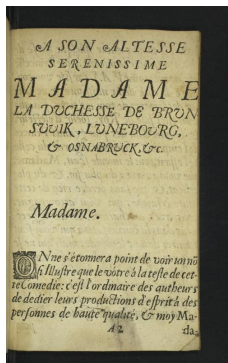 A SON ALTESSE
SERENISSIME
MADAME
LA DVCHESSE DE BRVN
SVVIK, LVNEBOVRG,
& OSNABRVCK, &c.
Madame.
ON ne s'étonnera point de voir un nõ
si Illustre que le vôtre à la teste de cet-
te Comedie: c'est l'ordinaire des autheurs
de dedier leurs productions d'esprit à des
personnes de haute qualité, & moy Ma-
A2
da-